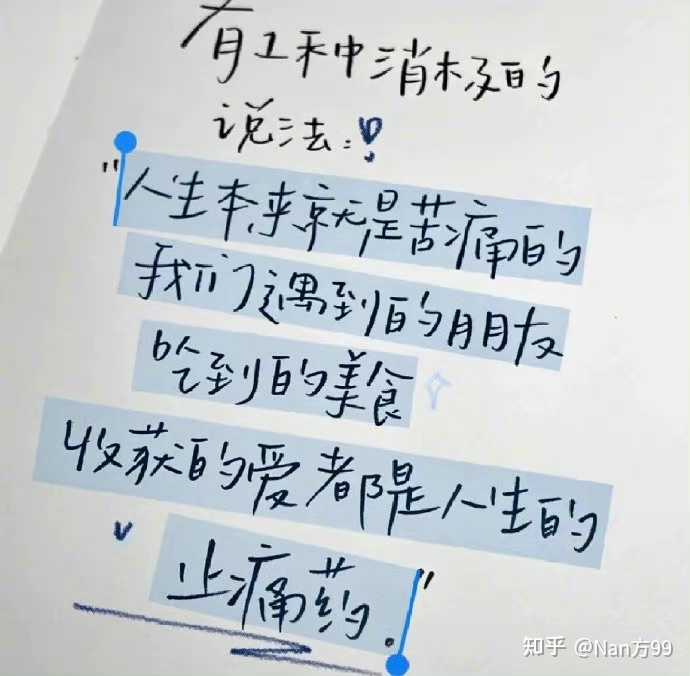 有一种消极的
说法：
"人生本来就是苦痛的
我们遇到的朋友
吃到的美食
收获的爱都是人生的
止痛药."
知乎 @Nan方99